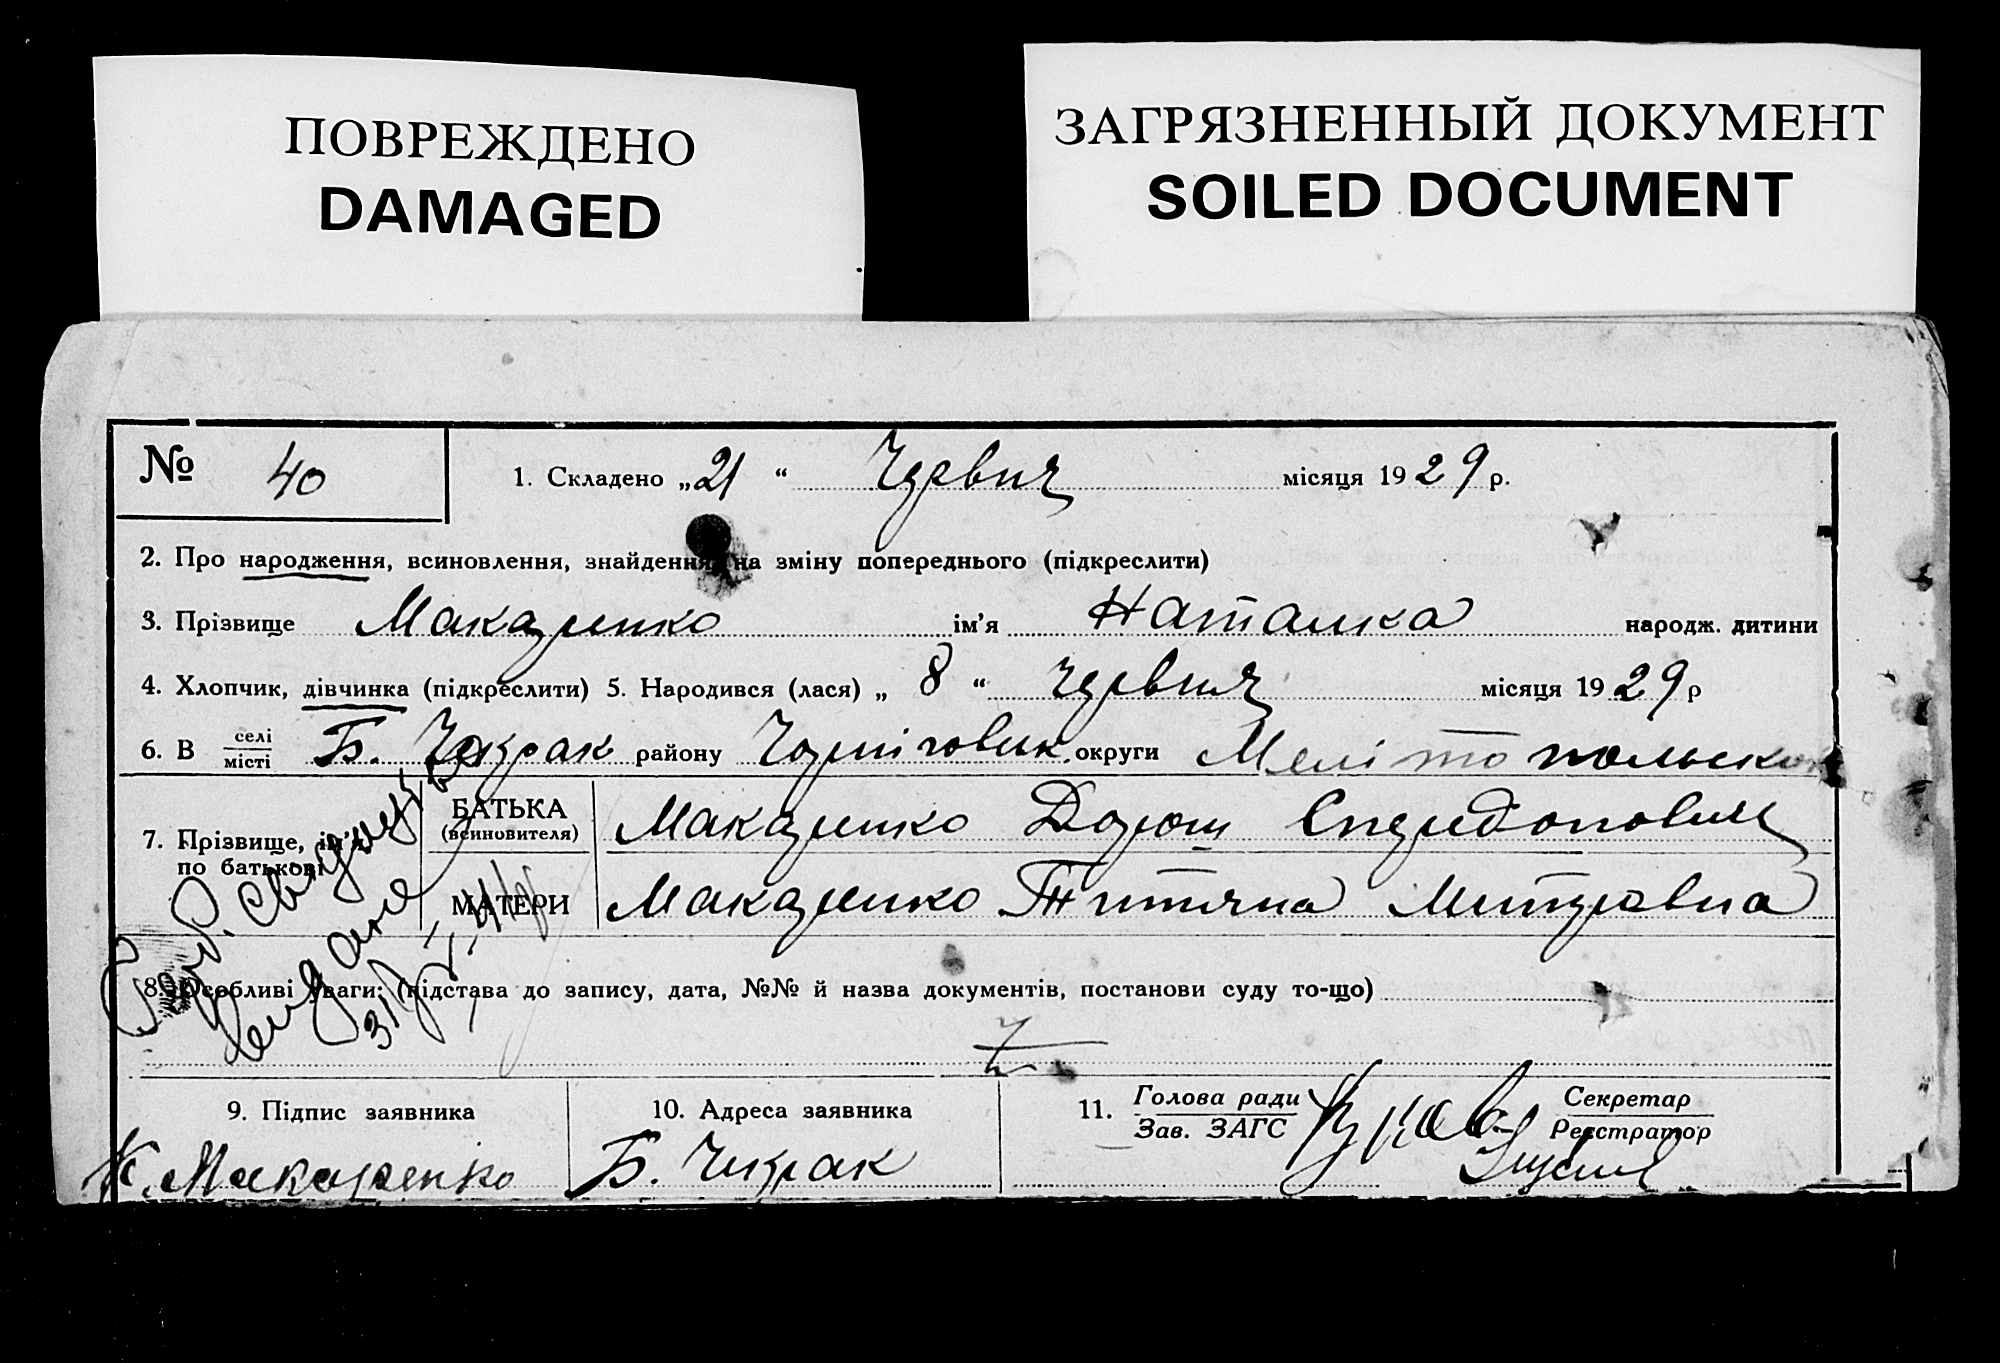 ПОВРЕЖДЕНО
DAMAGED
ЗАГРЯЗНЕННЫЙ ДОКУМЕНТ
SOILED DOCUMENT
№ 40
1. Складено „21“ Червня місяця 1929 р.
2. Про народження, всиновлення, знайдення, на зміну попереднього (підкреслити)
3. Прізвище Макаренко ім'я Наталка народж. дитини
4. Хлопчик, дівчинка (підкреслити) 5. Народився (лася) „8“ червня місяця 1929 р
6. В селі місті Б. Токрак району Черніговск. округи Мелітопольской
7. Прізвище, ім'я по батькові
БАТЬКА (всиновителя) Макаренко Дорош Сперидонович
МАТЕРИ Макаренко Титяна Митровна
8. Особливі уваги: (підстава до запису, дата, №№ й назва документів, постанови суду то-що)
9. Підпис заявника
10. Адреса заявника
11. Голова ради Зав. ЗАГС
Секретар Реєстратор
К. Макаренко
Б. Токрак